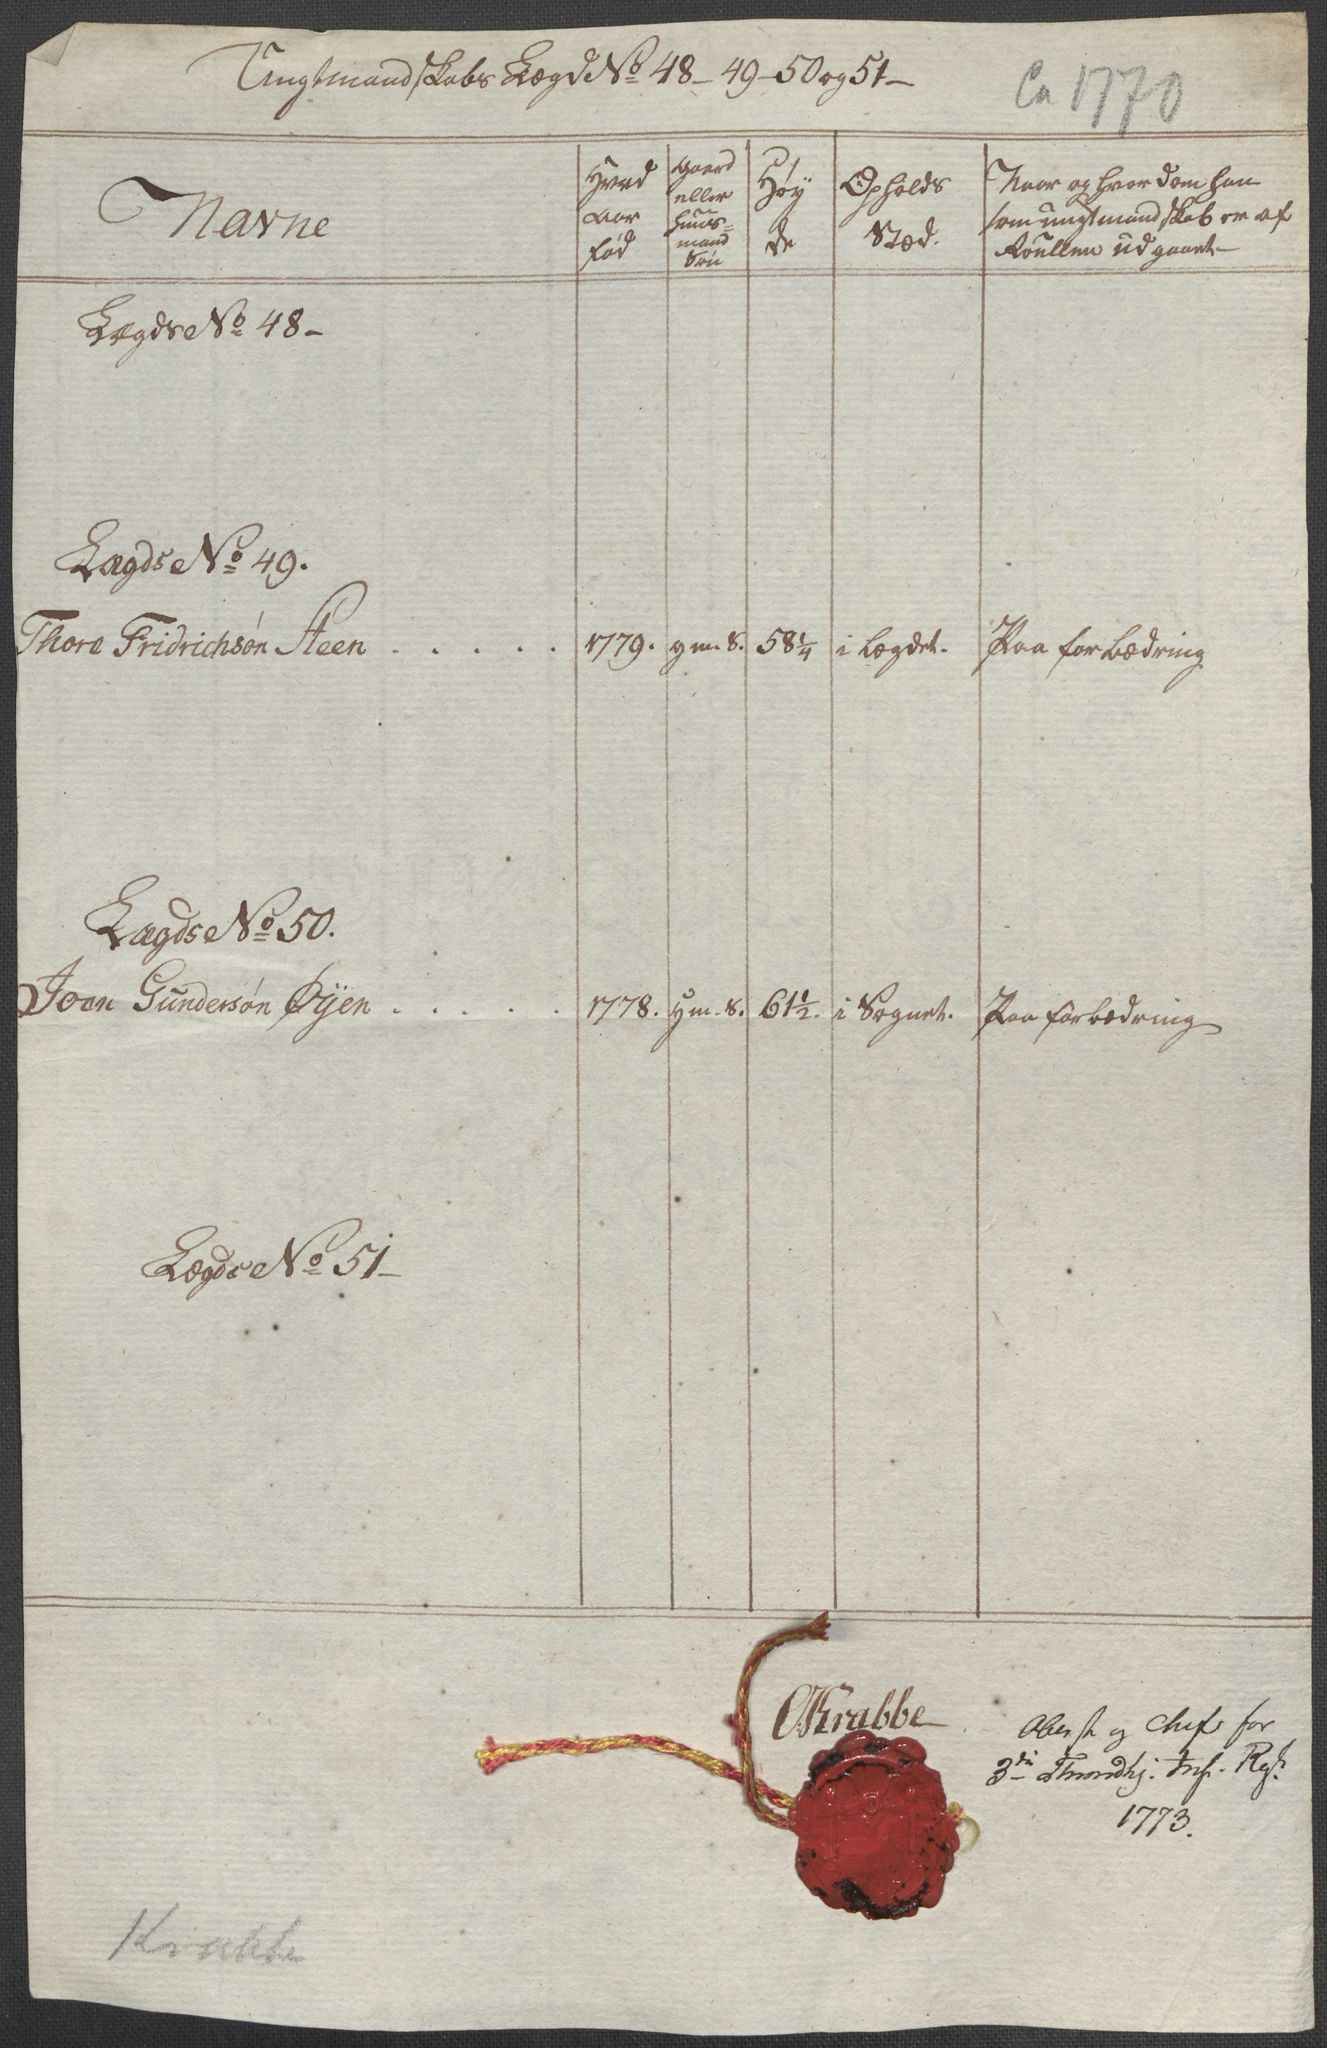 Ungtmandskabs Lægd No 48 - 49 - 50 og 51 -
Ca 1770
Navne
Hvad Aar fød
Gaard eller Huusmand Søn
Høyde
Opholds Stæd.
Naar og hvor dom han som ungtmandskab er af Roullen udgaaet
Lægds No 48 -
Lægds No 49.
Thore Fridrichsøn Steen . . . . . 1779. gm. S. 58 1/4 i Lægdet. Paa forbædring
Lægds No 50.
Joen Gundersøn Øyen . . . . . 1778. Hm. S. 61 1/2. i Sognet. Paa forbædring
Lægds No 51 -
OKrabbe
Oberst og Chef for
3die Trondhj. Inf. Rgt.
1773.
Krabbe